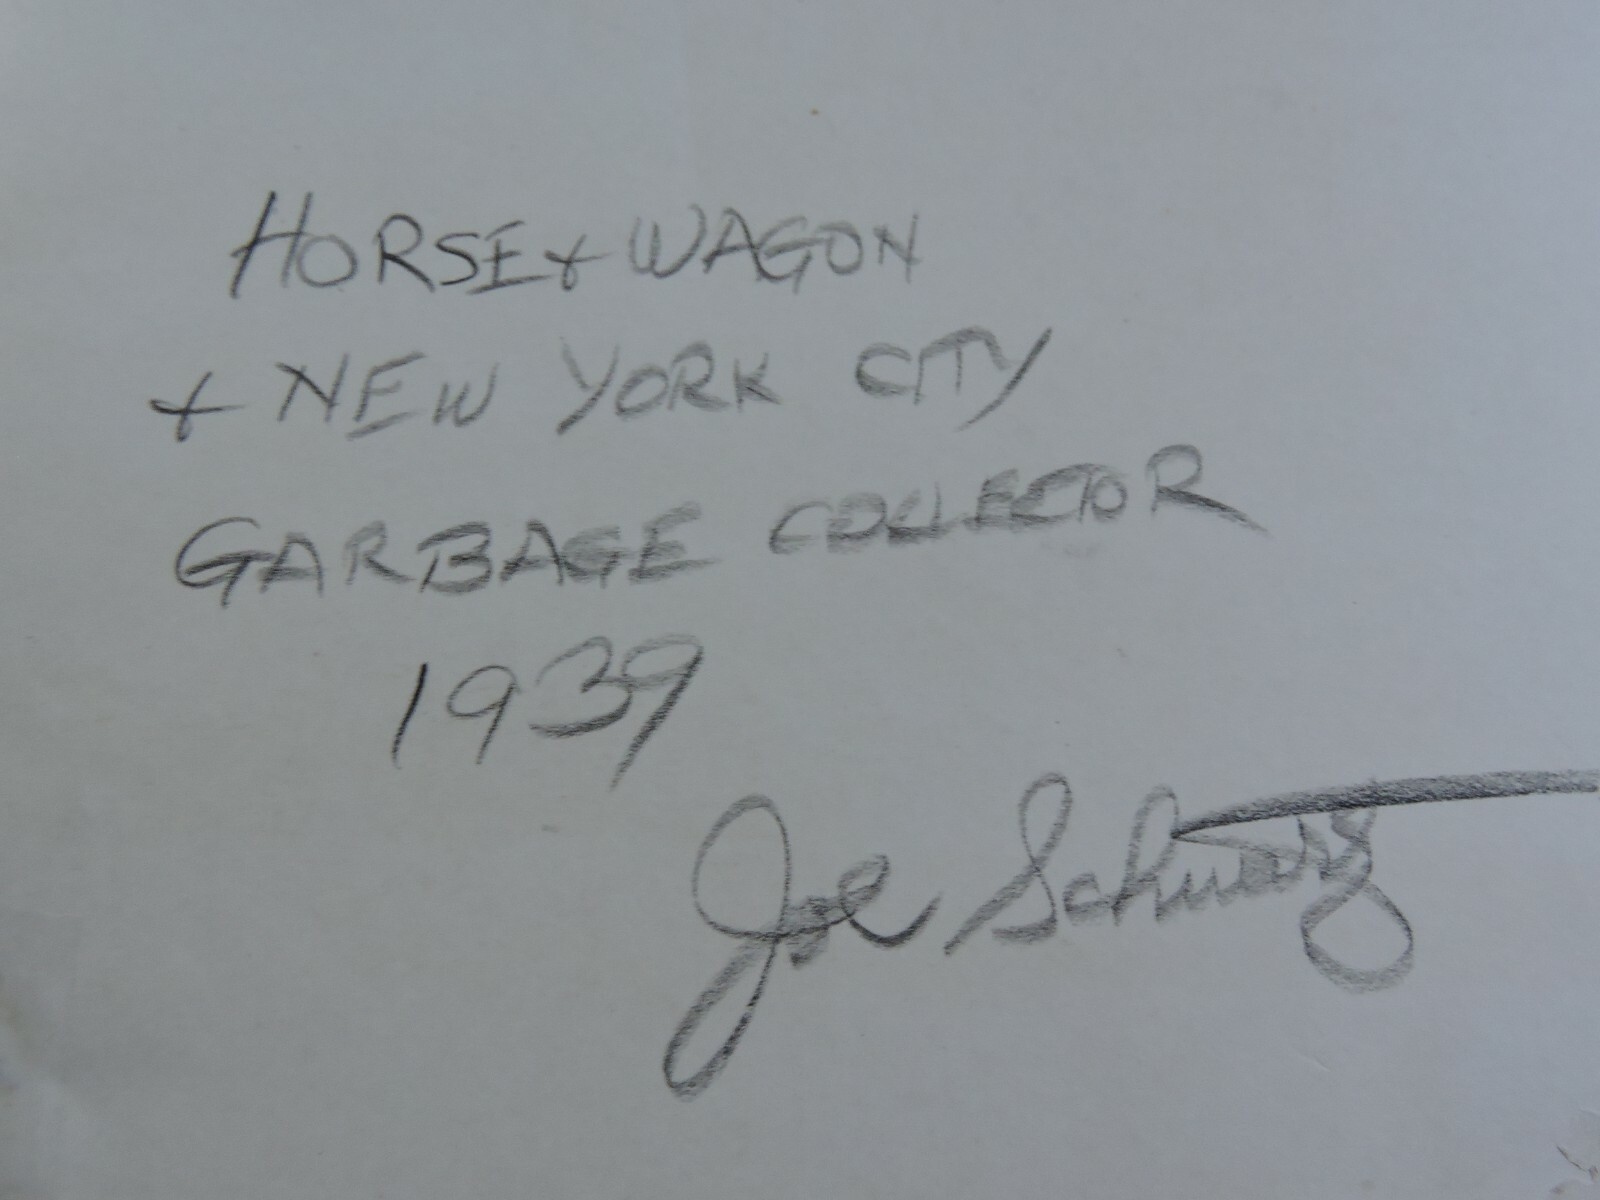 HORSE & WAGON
& NEW YORK CITY
GARBAGE COLLECTOR
1939
Joe Schwartz